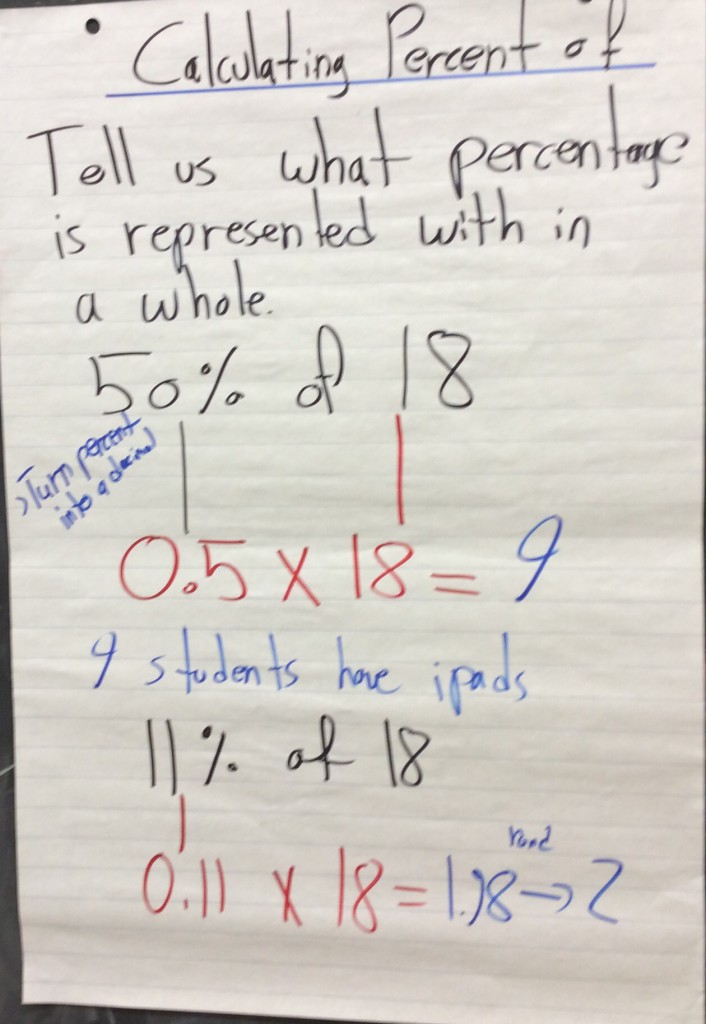 • Calculating Percent of
Tell us what percentage
is represented with in
a whole.
50% of 18
Turn percent
into a decimal
0.5 x 18 = 9
9 students have ipads
11% of 18
round
0.11 x 18 = 1.98 → 2